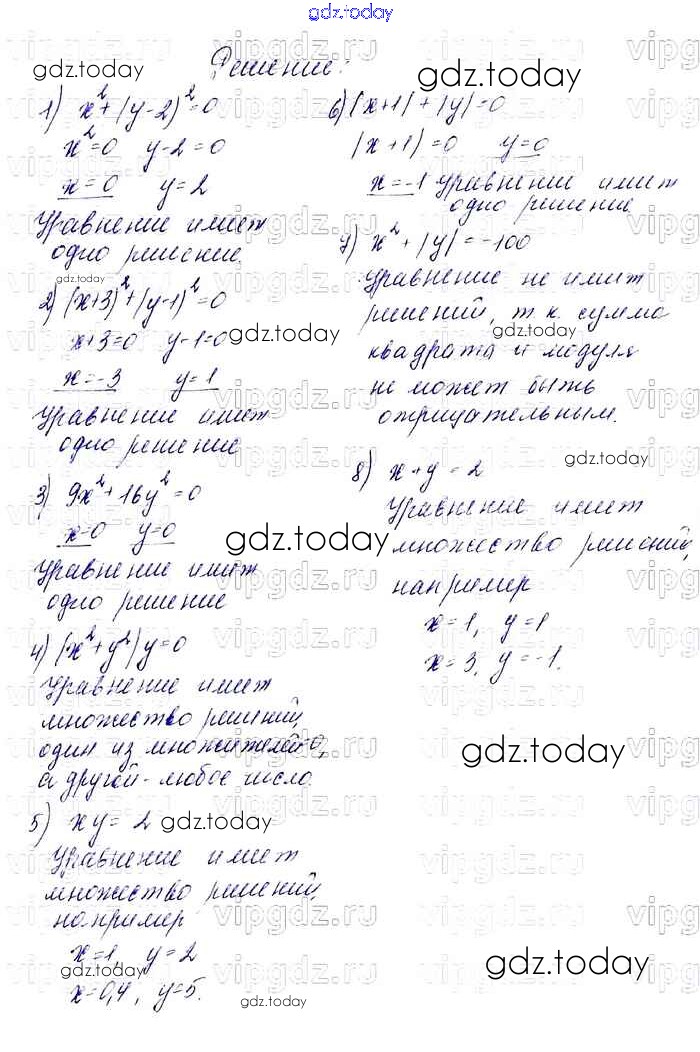 gdz.today
Решение:
1) x² + (y-2)² = 0
x² = 0 y-2 = 0
x = 0 y = 2
Уравнение имеет
одно решение.
2) (x+3)² + (y-1)² = 0
x+3=0 y-1=0
x = -3 y = 1
Уравнение имеет
одно решение
3) 9x² + 16y² = 0
x=0 y=0
Уравнение имеет
одно решение
4) (x² + y²)y = 0
Уравнение имеет
множество решений,
один из множителей 0,
а другой - любое число.
5) xy = 2
Уравнение имеет
множество решений,
например
x=1, y=2
x=0,4, y=5.
6) |x+1| + |y| = 0
|x+1| = 0 y=0
x = -1 Уравнение имеет
одно решение.
7) x² + |y| = -100
Уравнение не имеет
решений, т.к сумма
квадрата и модуля
не может быть
отрицательным.
8) x + y = 2
Уравнение имеет
множество решений,
например
x = 1, y = 1
x = 3, y = -1.
gdz.today
vipgdz.ru